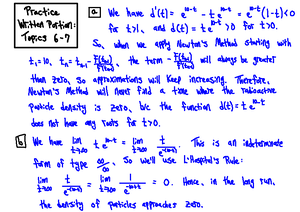 Practice
Written Portion:
Topics 6-7
a We have d'(t) = e^{10-t} - t e^{10-t} = e^{10-t}(1-t) < 0
for t > 1, and d(t) = t e^{10-t} > 0 for t > 0.
So, when we apply Newton's Method starting with
the term will always be greater
than zero, so approximations will keep increasing. Therefore,
Newton's Method will never find a time where the radioactive
particle density is zero, b/c the function d(t) = t e^{10-t}
does not have any roots for t > 0.
b We have lim t→∞ t e^{10-t} = lim t→∞ t/e^{t-10}. This is an indeterminate
form of type ∞/∞, so we'll use L'Hospital's Rule:
lim t→∞ t/e^{t-10} = lim t→∞ 1/e^{t-10} = 0. Hence, in the long run,
the density of particles approaches zero.